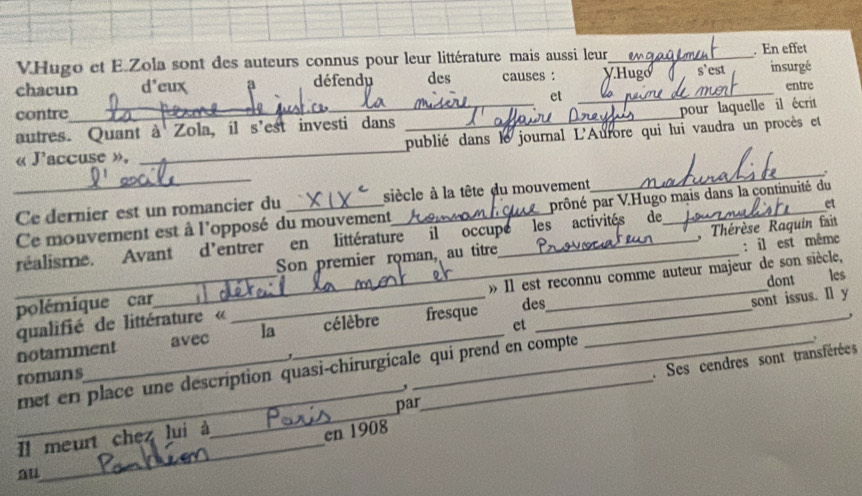 V.Hugo et E.Zola sont des auteurs connus pour leur littérature mais aussi leur engagement. En effet
chacun d'eux a défendu des causes : V.Hugo s'est insurgé
contre la peine de justice la misère et la peine de mort entre
autres. Quant à Zola, il s'est investi dans l'affaire Dreyfus pour laquelle il écrit
« J'accuse », publié dans le journal L'Aurore qui lui vaudra un procès et
l'exile.
Ce dernier est un romancier du XIXe siècle à la tête du mouvement naturaliste.
Ce mouvement est à l'opposé du mouvement romantique prôné par V.Hugo mais dans la continuité du
réalisme. Avant d'entrer en littérature il occupe les activités de journaliste et
Son premier roman, au titre Provocateur, Thérèse Raquin fait
polémique car il détail la mort et : il est même
qualifié de littérature « » Il est reconnu comme auteur majeur de son siècle,
notamment avec la célèbre fresque des dont les
romans , et sont issus. Il y
met en place une description quasi-chirurgicale qui prend en compte ,
, .
Il meurt chez lui à Paris par . Ses cendres sont transférées
au Panthéon en 1908